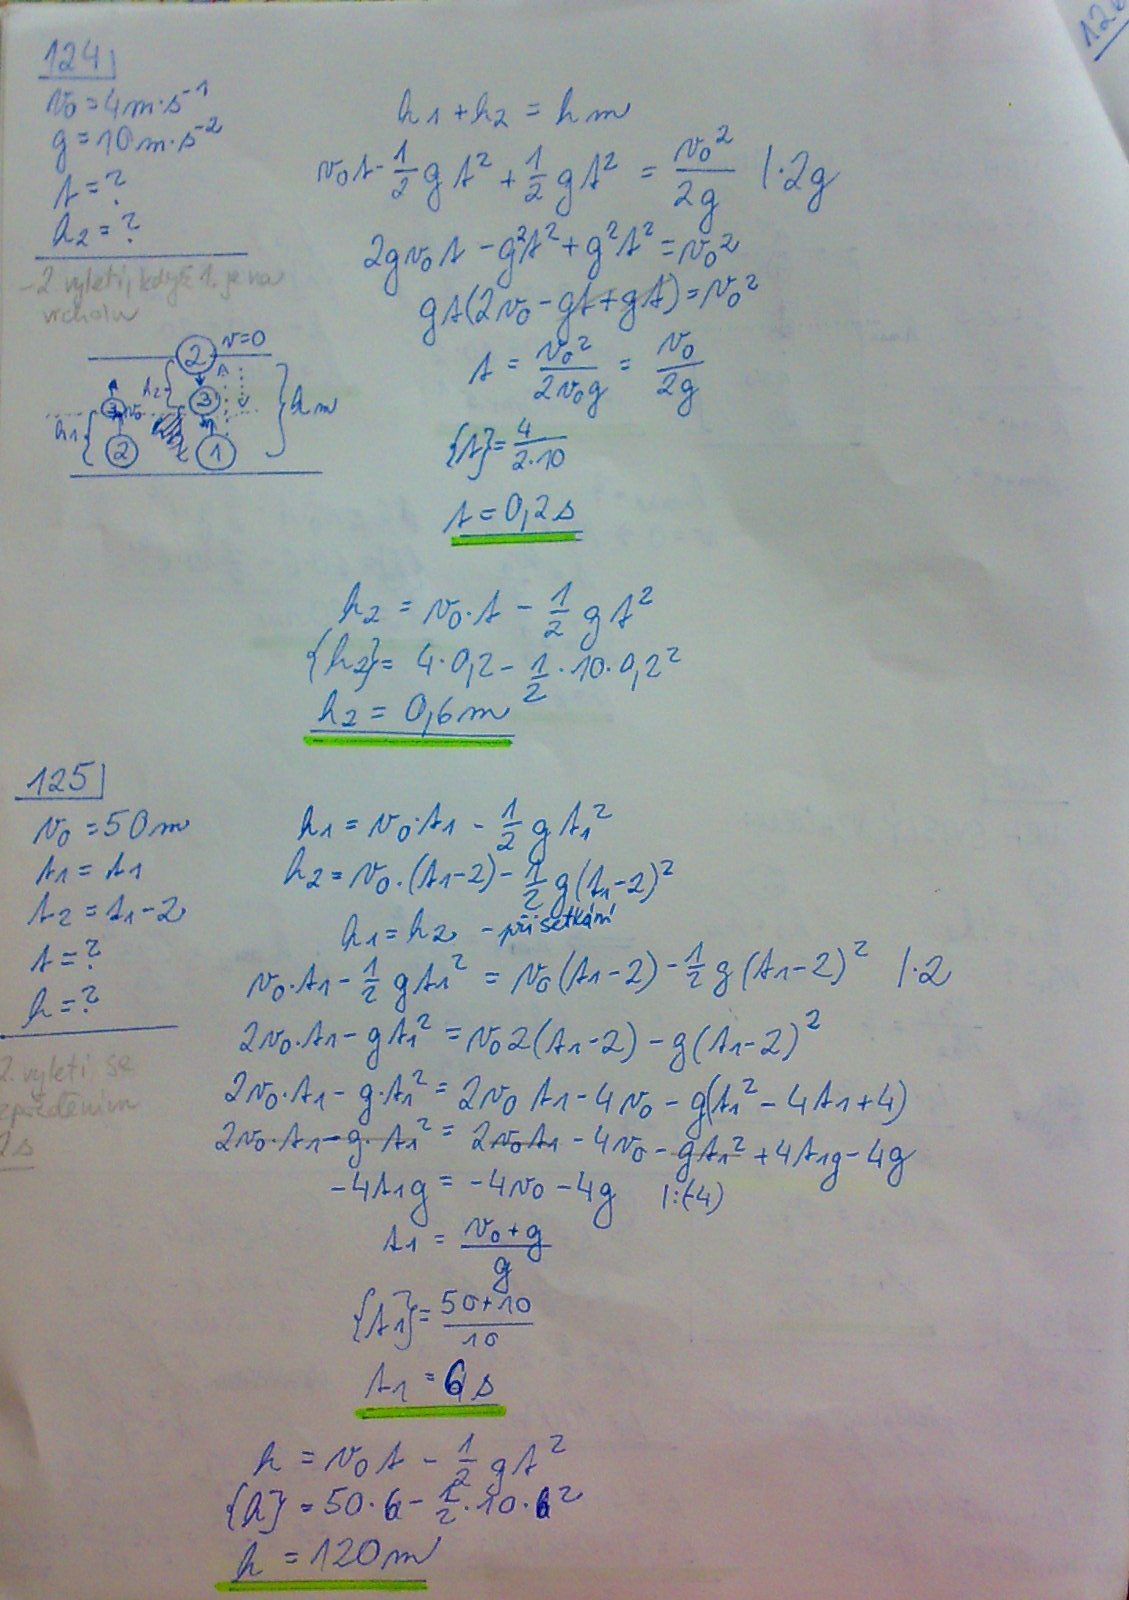 126
124
v₀ = 4 m·s⁻¹
g = 10 m·s⁻²
t = ?
h₂ = ?
- 2 vyletí, když 1. je na
vrcholu
2 v=0
h₂ 3 hm
3 v₀
h₁ 2 1
h₁ + h₂ = hm
v₀t - 1/2 g t² + 1/2 g t² = v₀²/2g |·2g
2gv₀t - g²t² + g²t² = v₀²
gt(2v₀ - gt + gt) = v₀²
t = v₀²/2v₀g = v₀/2g
{t} = 4/2·10
t = 0,2 s
h₂ = v₀·t - 1/2 g t²
{h₂} = 4·0,2 - 1/2·10·0,2²
h₂ = 0,6 m
125
v₀ = 50 m
t₁ = t₁
t₂ = t₁-2
t = ?
h = ?
2. vyletí se
zpožděním
2s
h₁ = v₀·t₁ - 1/2 g t₁²
h₂ = v₀·(t₁-2) - 1/2 g(t₁-2)²
h₁ = h₂ - při setkání
v₀·t₁ - 1/2 g t₁² = v₀(t₁-2) - 1/2 g(t₁-2)² |·2
2v₀·t₁ - g t₁² = v₀2(t₁-2) - g(t₁-2)²
2v₀·t₁ - g·t₁² = 2v₀ t₁ - 4v₀ - g(t₁² - 4t₁ + 4)
2v₀·t₁ - g·t₁² = 2v₀t₁ - 4v₀ - gt₁² + 4t₁g - 4g
-4t₁g = -4v₀ - 4g |:(-4)
t₁ = v₀+g/g
{t₁} = 50+10/10
t₁ = 6 s
h = v₀t - 1/2 g t²
{h} = 50·6 - 1/2·10·6²
h = 120 m